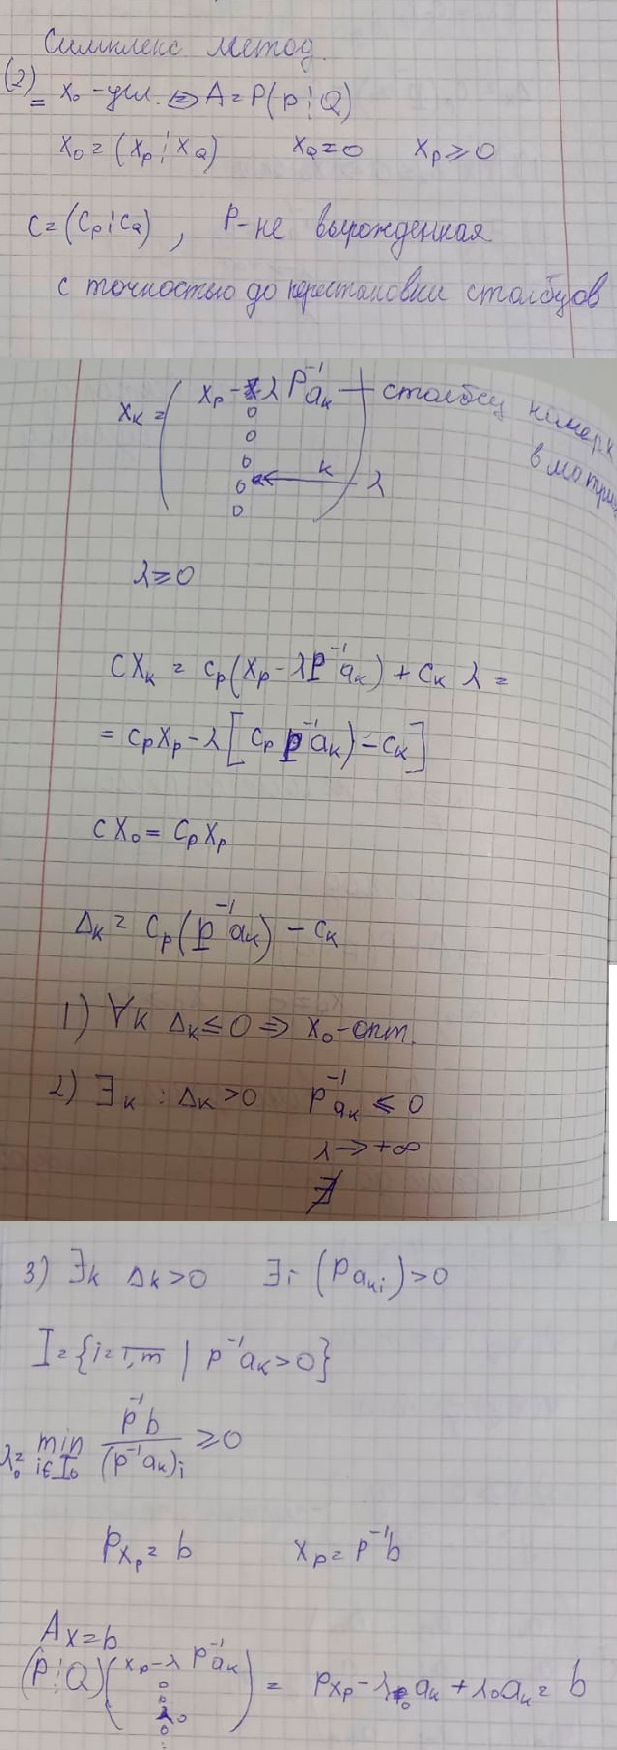 Симплекс метод.
(2)
= x₀ - угл. ⇔ A = P(P ¦ Q)
x₀ = (x_P ¦ x_Q) x_Q = 0 x_P ≥ 0
C = (C_P ¦ C_Q) , P - не вырожденная
с точностью до перестановки столбцов
x_k = ( x_P - λ P⁻¹a_k ) столбец номер k
0 в матри
0
0
0 ← k λ
0
λ ≥ 0
C x_k = C_P (x_P - λ P⁻¹ a_k) + C_k λ =
= C_P x_P - λ [ C_P P⁻¹ a_k) - C_k ]
C x₀ = C_P x_P
Δ_k = C_P (P⁻¹ a_k) - C_k
1) ∀k Δ_k ≤ 0 ⇒ x₀ - опт.
2) ∃k : Δ_k > 0 P⁻¹ a_k ≤ 0
λ → +∞
∄
3) ∃k Δk > 0 ∃i (P a_k i) > 0
I = {i = 1,m | P⁻¹ a_k > 0}
λ₀ = min i∈I₀ P⁻¹b / (P⁻¹ a_k)_i ≥ 0
P x_P = b x_P = P⁻¹ b
A x = b
(P ¦ Q) ( x_P - λ P⁻¹ a_k ) = P x_P - λ₀ a_k + λ₀ a_k = b
0
0
λ₀
0